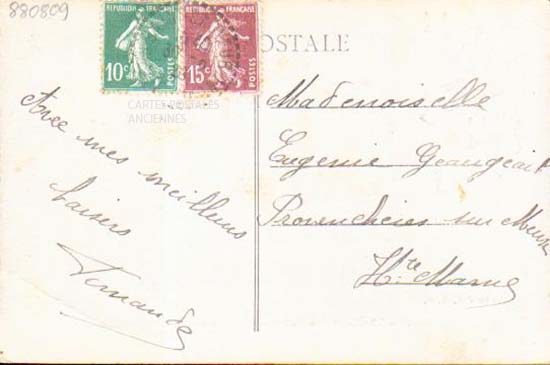 880809
REPUBLIQUE FRANCAISE
10c POSTES
REPUBLIQUE FRANCAISE
15c POSTES
OSTALE
CARTES POSTALES
ANCIENNES
Avec mes meilleurs
baisers
Fernande
Mademoiselle
Eugenie
Provencheres sur Meuse
Hte Marne